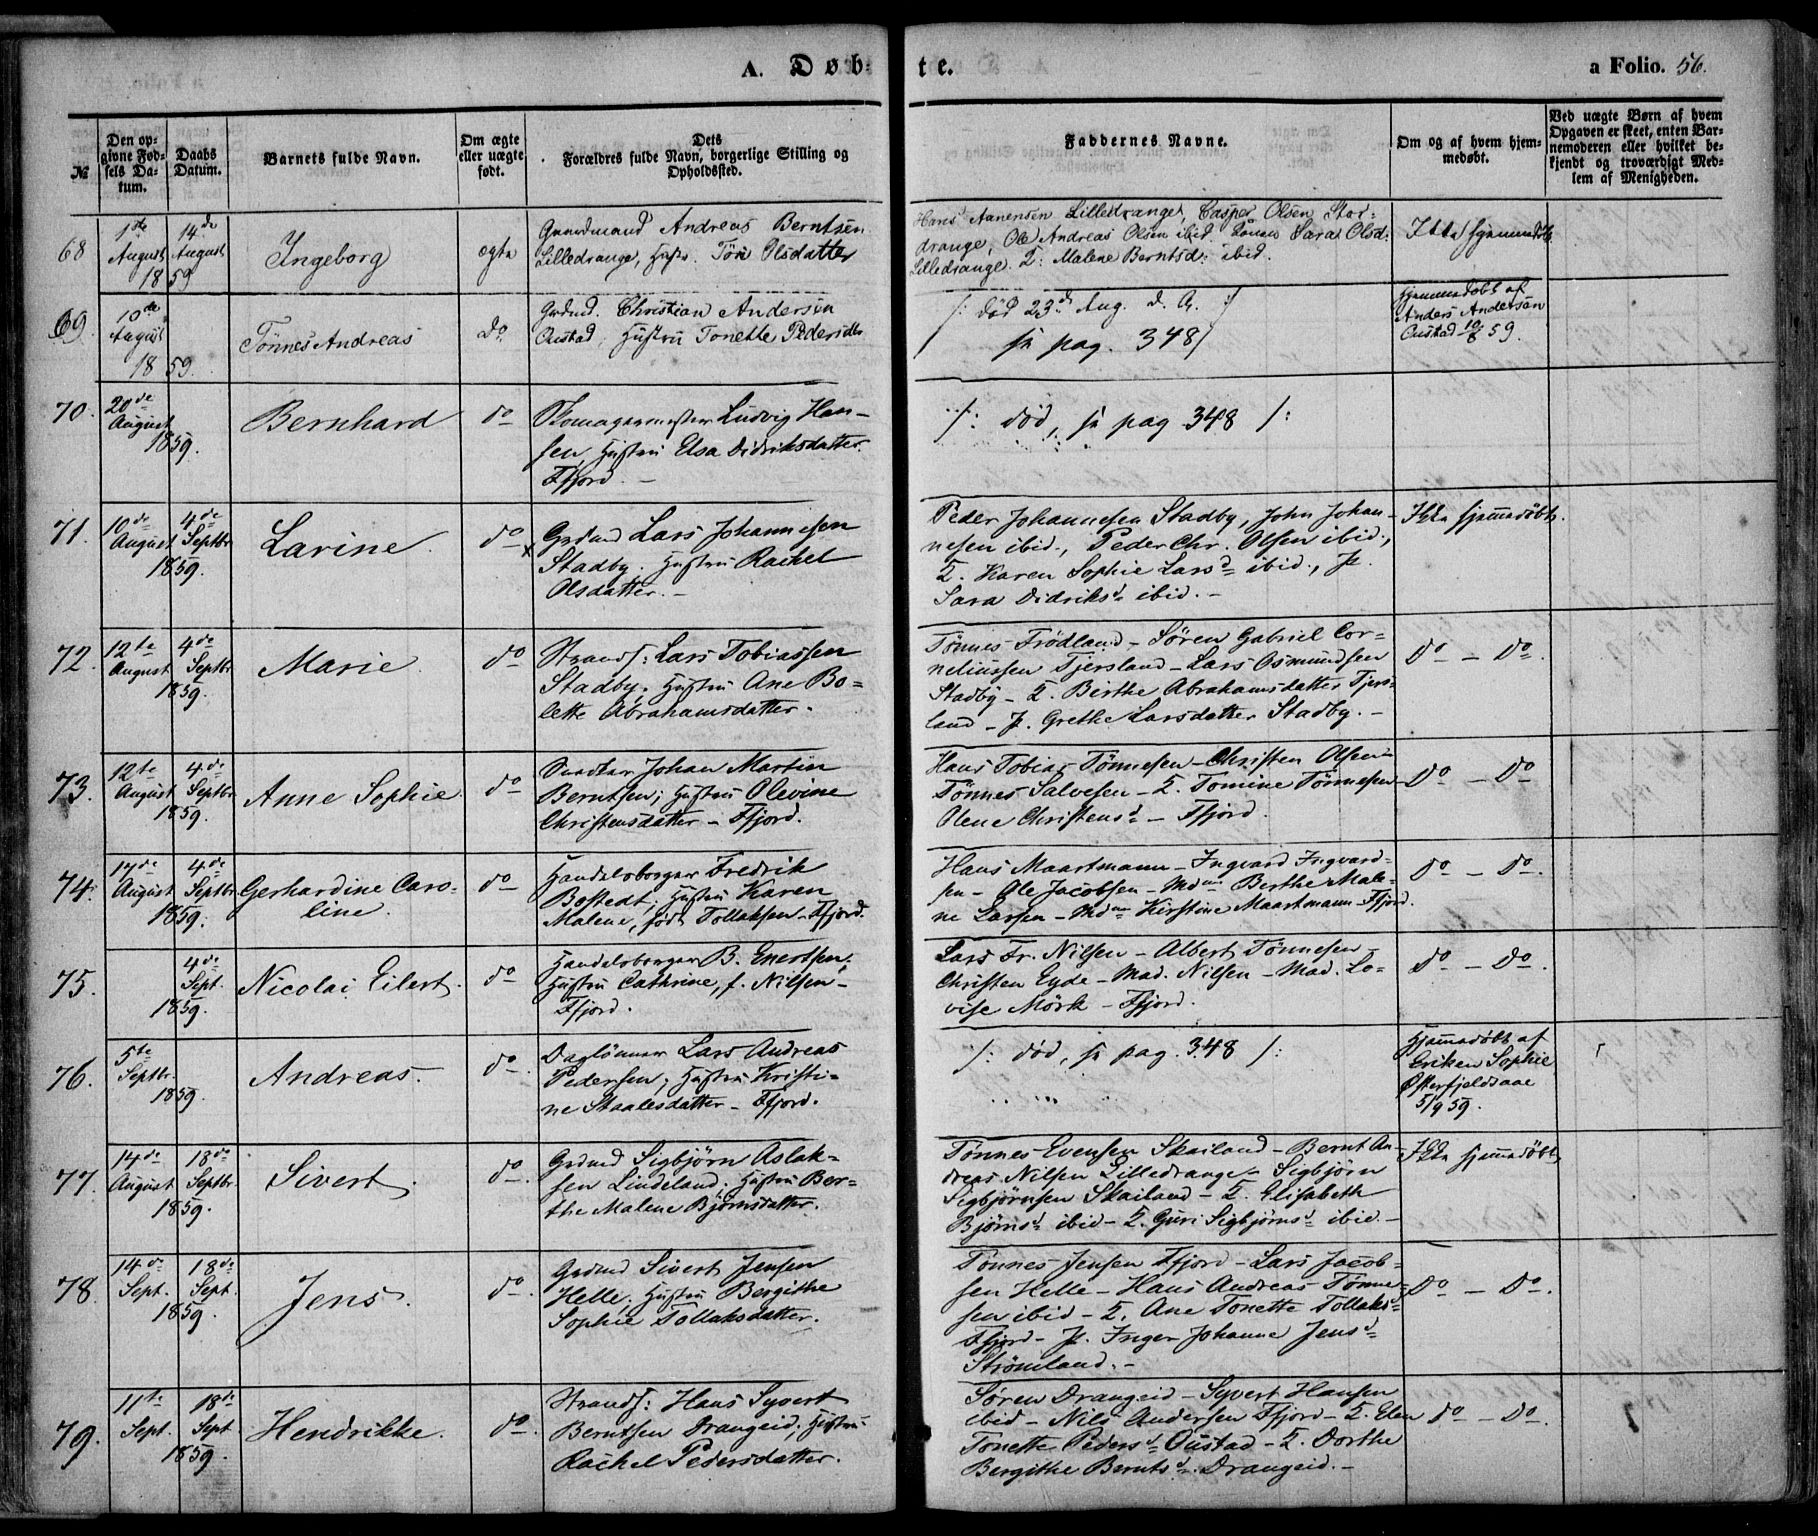 A. Døb-
te.
a Folio. 56.
№
Den op-
givne Fød-
sels Da-
tum.
Daabs
Datum.
Barnets fulde Navn.
Om ægte
eller uægte
født.
Dets
Forældres fulde Navn, borgerlige Stilling og
Opholdssted.
Faddernes Navne.
Om og af hvem hjem-
medøbt.
Ved uægte Børn af hvem
Opgaven er skeet, enten Bar-
nemoderen eller hvilket be-
kjendt og troværdigt Med-
lem af Menigheden.
68
1ste
August
14de
August
1859
Ingeborg
ægte
Gaardmand Andreas Berntsen
Lilledrange, Hustr. Tøri Olsdatter
Hans Aanensen Lilledrange, Casper Olsen Stor-
drange, Ole Andreas Olsen ibid. Sara Olsd:
Lilledrange. Malene Berntsd: ibid.
Ikke hjemmedøbt
69.
10de
August
1859.
Tönnes Andreas
Do
Grdmd. Christian Andersen
Oustad, Hustru Tonette Pedersdtr
/: død 23de Aug. d. A. :/
/ se pag. 348/
Hjemmedøbt af
Anders Andersen
Oustad 10/8 59.
70.
20de
August
1859.
Bernhard
do
Ludvig Han-
sen, Hustru Elsa Didriksdatter
Ffjord. –
/: død, se pag. 348 /:
71.
10de
August
4de
Septbr
1859.
Larine.
do
Grdmd Lars Johannesen
Stadby. Hustru Rachel
Olsdatter. –
Peder Johannesen Stadby, John Johan-
nesen ibid., Peder Chr. Olsen ibid.,
Karen Sophie Larsd ibid., P.
Sara Didriksd ibid. –
Ikke hjemmedøbt.
72.
12te
August
4de
Septbr
1859.
Marie.
do
Strands: Lars Tobiassen
Stadby. Hustru Ane Bo-
lette Abrahamsdatter.
Tönnes Frödland – Sören Gabriel Cor-
neliussen Tjersland – Lars Osmundsen
Stadby – Birthe Abrahamsdatter Tjers-
land – P. Grethe Larsdatter Stadby. –
Do – Do.
73.
12te
August
4de
Septbr
1859.
Anne Sophie
do
Johan Martin
Berntsen; Hustru Olevine
Christensdatter – Ffjord.
Hans Tobias Tönnesen – Christen Olsen –
Tönnes Salvesen – Tomine Tönnesen –
Olene Christensd – Ffjord.
Do – Do
74.
17de
August
4de
Septbr
1859.
Gerhardine Caro-
line.
do
Handelsborger Fredrik
Bostedt; Hustru Karen
Malene, født Tollaksen – Ffjord.
Hans Maartmann – Ingvard Ingvard-
sen – Ole Jacobsen – Mdme Berthe Male-
ne Larsen – Mdme Kirstine Maartmann – Ffjord.
Do – Do.
75.
4de
Sept.
1859.
Nicolai Eilert.
do
Handelsborger B. Enertsen;
Hustru Cathrine, f. Nilsen –
Ffjord.
Lars Fr. Nilsen – Albert Tönnesen –
Christen Eyde – Mad. Nilsen – Mad. Lo-
vise Mörk – Ffjord.
Do – Do.
76.
5te
Septbr.
1859.
Andreas.
do.
Daglönner Lars Andreas
Pedersen; Hustru Kristi-
ne Staalesdatter – Ffjord.
/: død, se pag. 348 /:
Hjemmedøbt af
Eriken Sophie
5/9 59.
77.
14de
August
18de
Septbr.
1859.
Sivert.
do.
Grdmd Sigbjörn Aslak-
sen Lindeland. Hustru Ber-
the Malene Bjömsdatter.
Tönnes Evensen Skailand – Bernt An-
dreas Nilsen Lilledrange – Sigbjörn
Sigbjörnsen Skailand – Elisabeth
Bjömsd ibid – Guri Sigbjörnsd ibid. –
Ikke hjemmedøbt
78.
14de
Sept.
18de
Sept.
1859.
Jens.
do.
Grdmd Sivert Jensen
Helle; Hustru Bergithe
Sophie Tollaksdatter.
Tönnes Jensen Ffjord – Lars Jacob-
sen Helle – Hans Andreas Tönne-
sen ibid – Ane Tonette Tollaksd
Ffjord – P. Inger Johanne Jensd
Strömland. –
Do – Do.
79.
11te
Sept.
18de
Sept
1859.
Hendrikke.
do.
Strands: Hans Syvert
Berntsen Drangeid; Hustru
Rachel Pedersdatter.
Sören Drangeid – Syvert Hansen
ibid – Nils Andersen Ffjord – Elen
Tonette Pedersd Oustad – Dorthe
Bergithe Berntsd Drangeid. –
do – Do.